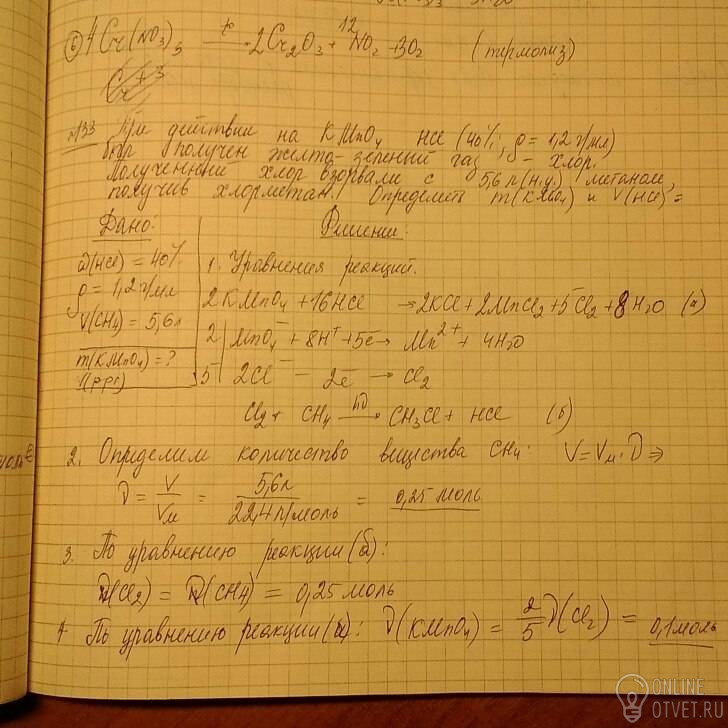 ⑥ 4Cr(NO3)3 t° → 2Cr2O3 + 12NO2 + 3O2 (термолиз)
Cr+3
№133 При действии на KMnO4 HCl (40%, ρ = 1,2 г/мл)
был получен желто-зеленый газ – хлор.
Полученный хлор взорвали с 5,6 л (н.у.) метаном,
получив хлорметан. Определить m(KMnO4) и V(HCl) =
Дано:
ω(HCl) = 40%
ρ = 1,2 г/мл
V(CH4) = 5,6 л
m(KMnO4) = ?
V(р-ра)
Решение:
1. Уравнения реакций.
2KMnO4 + 16HCl → 2KCl + 2MnCl2 + 5Cl2 + 8H2O (а)
2 | MnO4⁻ + 8H⁺ + 5e → Mn²⁺ + 4H2O
5 | 2Cl⁻ – 2e → Cl2
Cl2 + CH4 hν → CH3Cl + HCl (б)
2. Определим количество вещества CH4. V = Vм · ν ⇒
ν = V/Vм = 5,6 л / 22,4 л/моль = 0,25 моль
3. По уравнению реакции (б):
ν(Cl2) = ν(CH4) = 0,25 моль
4 По уравнению реакции (а): ν(KMnO4) = 2/5 ν(Cl2) = 0,1 моль
ONLINE
OTVET.RU